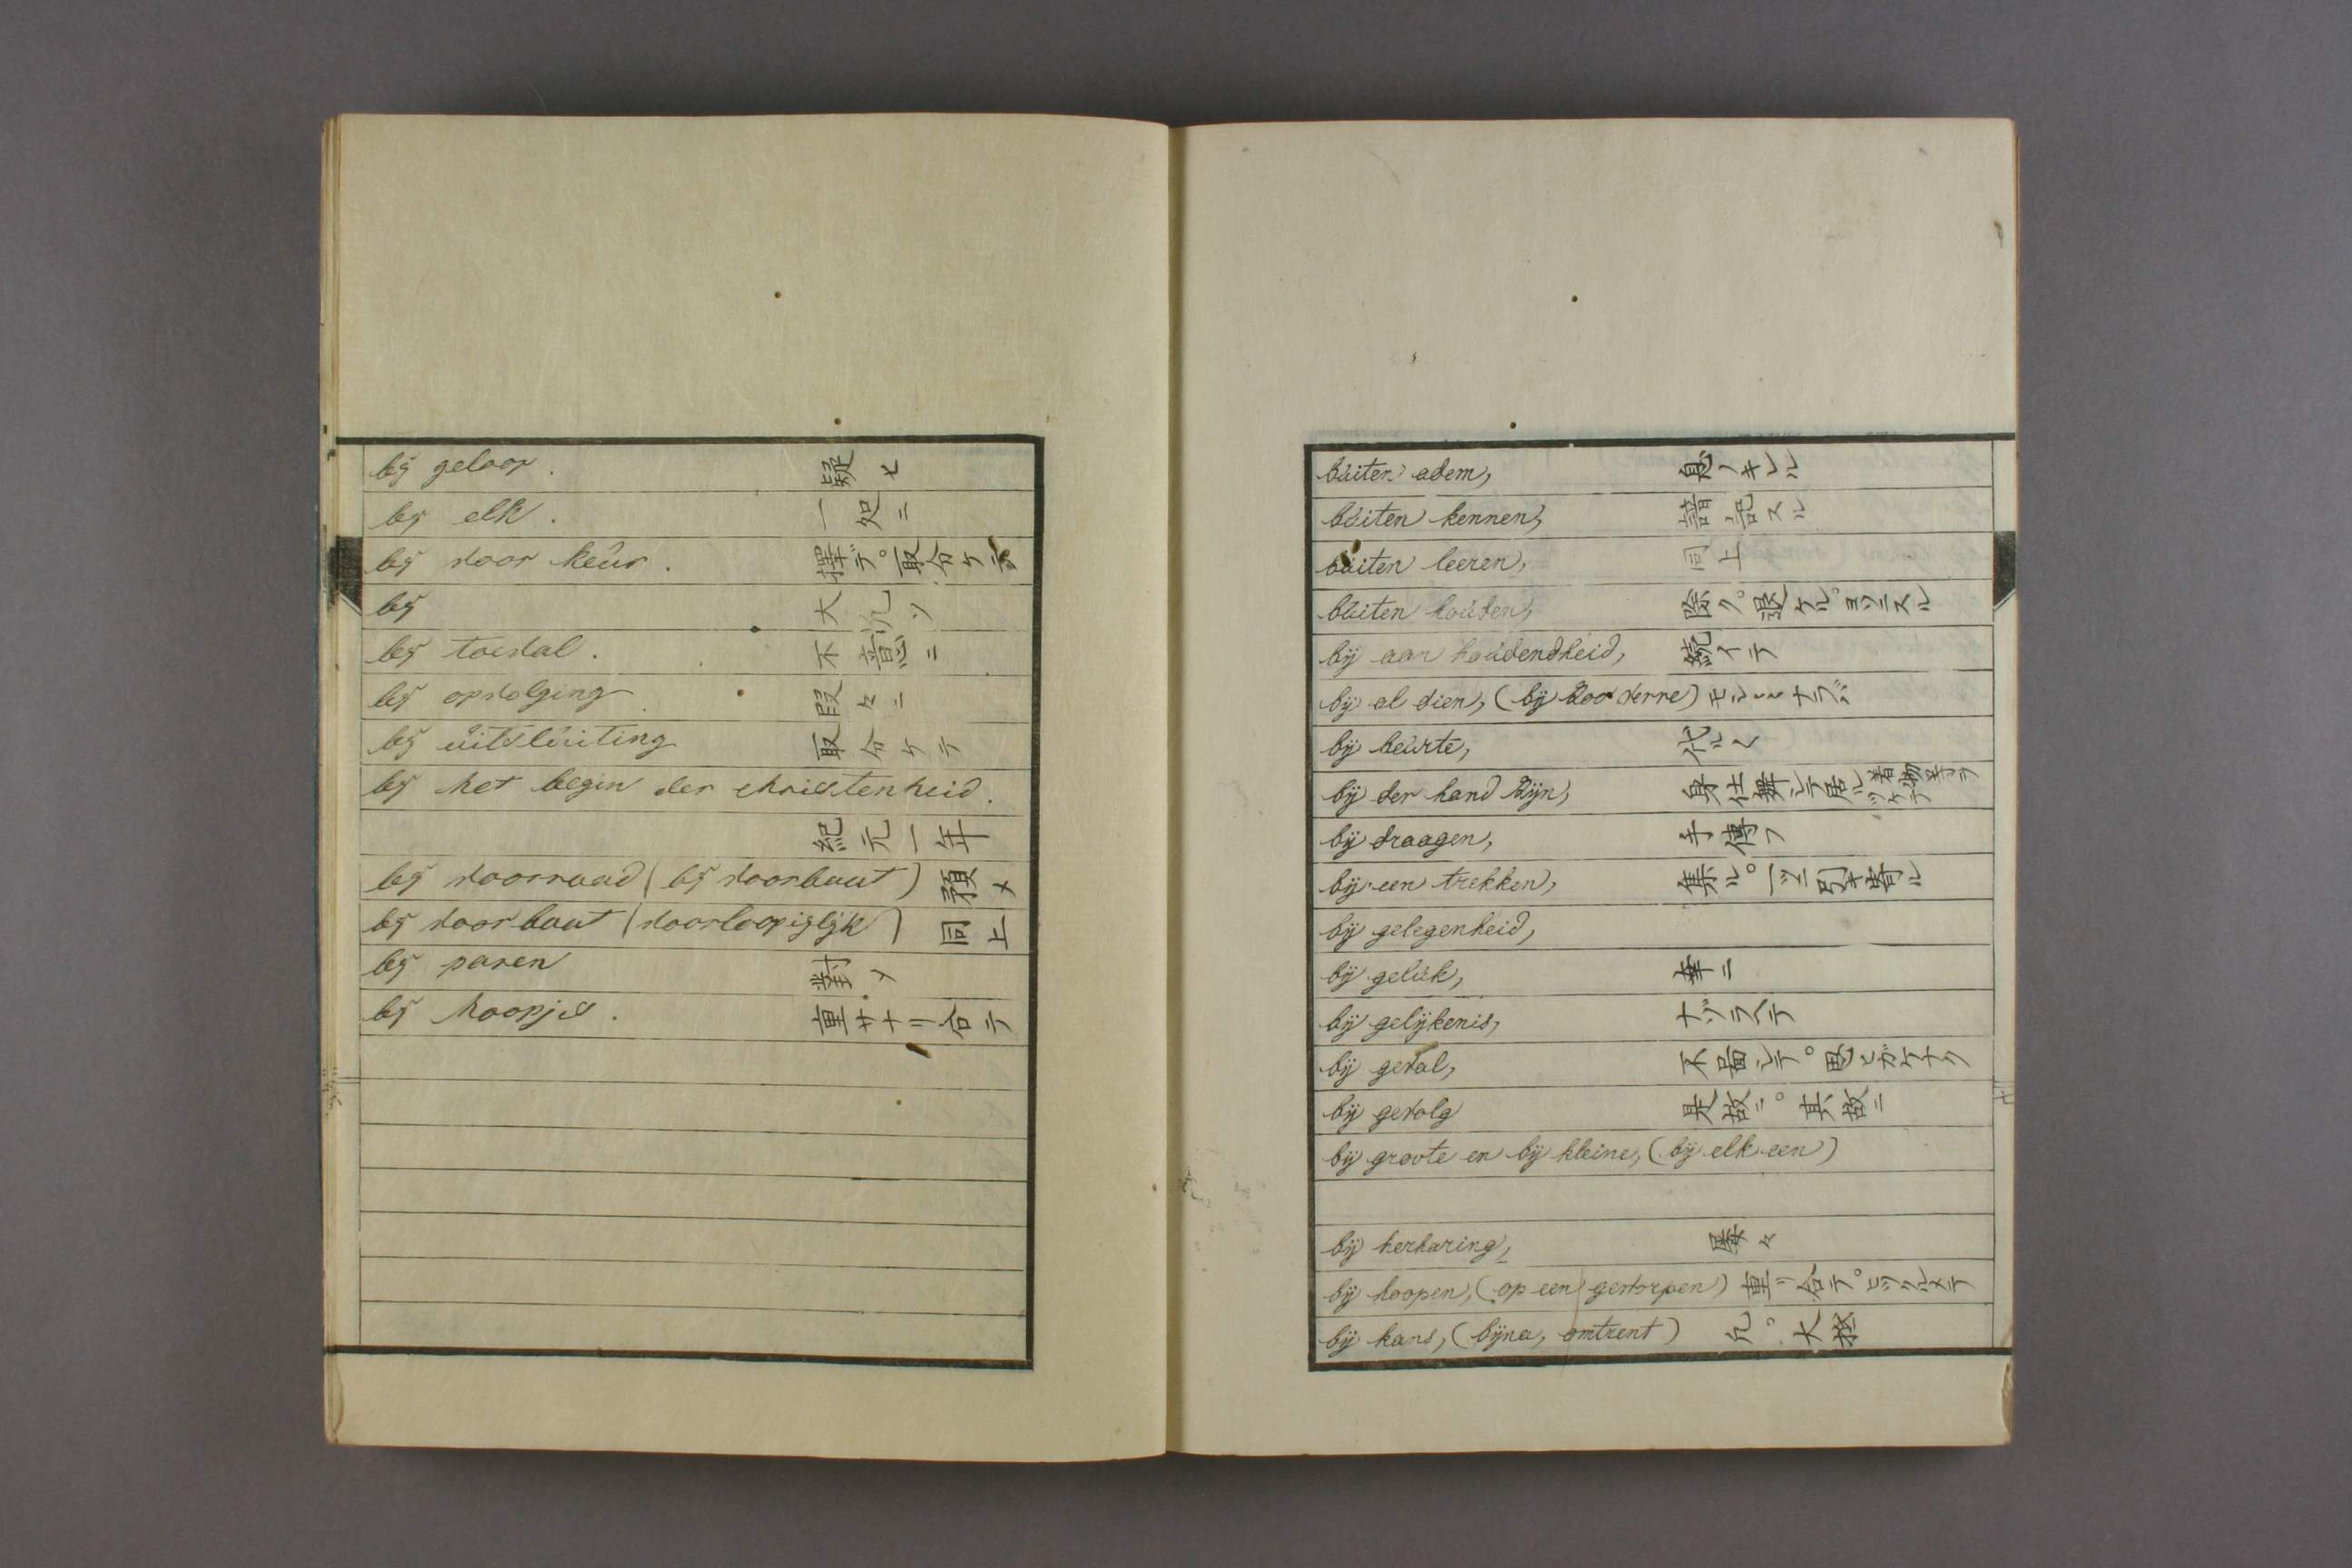 bij geloop. 疑ヒ
bij elk. 一処ニ
bij voor keur. 擇デ。取分ケテ
bij 大凢ソ
bij toeval. 不意ニ
bij opvolging 段々ニ
bij uitsluiting 取分ケテ
bij het begin der christenheid.
紀元一年
bij voorraad (bij voorbaat) 預メ
bij voorbaat (voorloopiglijk) 同上
bij paren 對メ
bij hoopjes. 重サナリ合テ
buiten adem, 息ノキレル
buiten kennen, 諳記スル
buiten leeren, 同上
buiten houden, 除ク。退ケル。ヨソニスル
bij aan houdendheid, 続イテ
bij al dien, (bij zoo verre) モシ
bij beurte, 代ル〱
bij der hand zijn, 身仕舞シテ居ル
bij draagen, 手傳フ
bij een trekken, 集ル。一ツニ引キ寄ル
bij gelegenheid,
bij geluk, 幸ニ
bij gelijkenis, ナゾラヘテ
bij geval, 不圖シテ。思ヒガケナク
bij gevolg 是故ニ。其故ニ
bij groote en bij kleine, (bij elk een)
bij herharing, 屡々
bij hoopen, (op een geworpen) 重リ合テ。ヒツクルメテ
bij kans, (bijna, omtrent) 凢。大抵